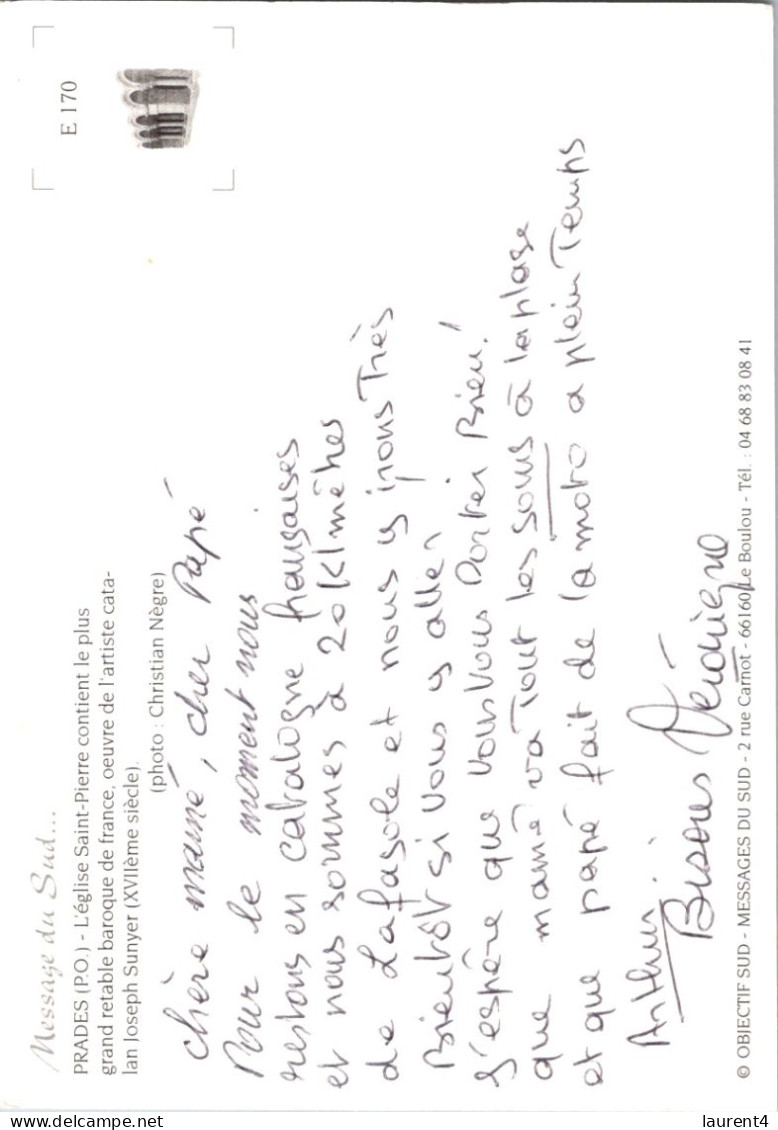 Message du Sud...
PRADES (P.O.) - L'église Saint-Pierre contient le plus
grand retable baroque de france, oeuvre de l'artiste cata-
lan Joseph Sunyer (XVIIème siècle).
(photo : Christian Nègre)
E 170
chère mamé, cher Papé
Pour le moment nous
restons en catalogne françaises
et nous sommes à 20 Klmètres
de Lafasole et nous y irons Très
Bientôt si vous y aller
J'espère que vous vous Porter Bien!
que mamé va Tout les sous à la plage
et que papé fait de la moto a plein Temps
Arthur.
Bisous Véronique
© OBJECTIF SUD - MESSAGES DU SUD - 2 rue Carnot - 66160 Le Boulou - Tél. : 04 68 83 08 41
laurent4
delcampe.net